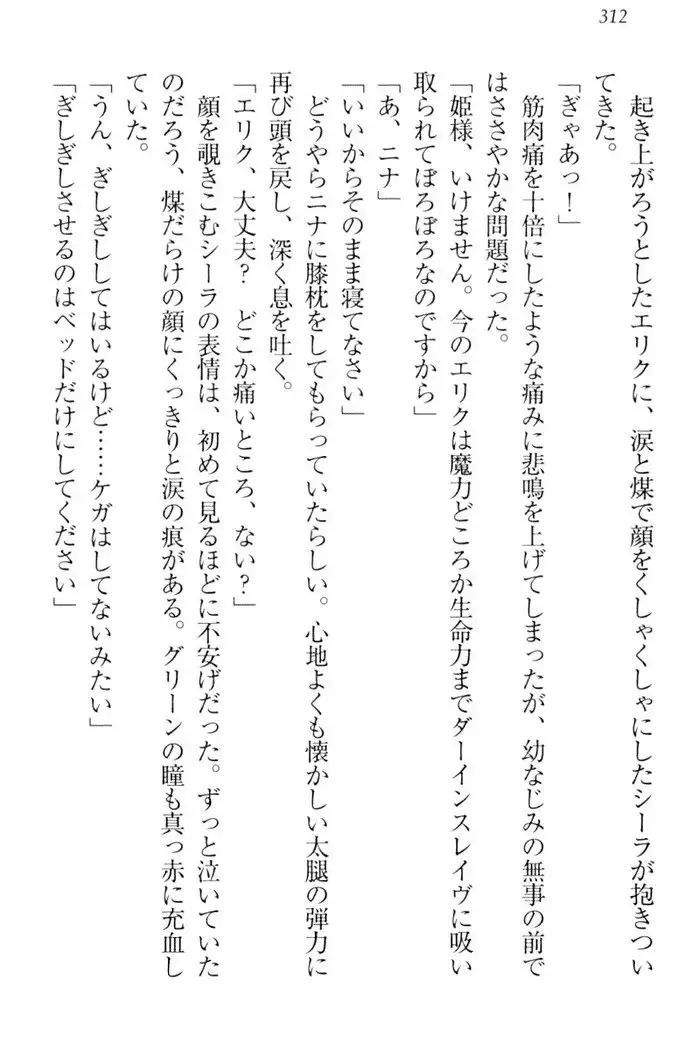 312
起き上がろうとしたエリクに、涙と煤で顔をくしゃくしゃにしたシーラが抱きつい
てきた。
「ぎゃあっ！」
筋肉痛を十倍にしたような痛みに悲鳴を上げてしまったが、幼なじみの無事の前で
はささやかな問題だった。
「姫様、いけません。今のエリクは魔力どころか生命力までダーインスレイヴに吸い
取られてぼろぼろなのですから」
「あ、ニナ」
「いいからそのまま寝てなさい」
どうやらニナに膝枕をしてもらっていたらしい。心地よくも懐かしい太腿の弾力に
再び頭を戻し、深く息を吐く。
「エリク、大丈夫？　どこか痛いところ、ない？」
顔を覗きこむシーラの表情は、初めて見るほどに不安げだった。ずっと泣いていた
のだろう、煤だらけの顔にくっきりと涙の痕がある。グリーンの瞳も真っ赤に充血し
ていた。
「うん、ぎしぎししてはいるけど……ケガはしてないみたい」
「ぎしぎしさせるのはベッドだけにしてください」